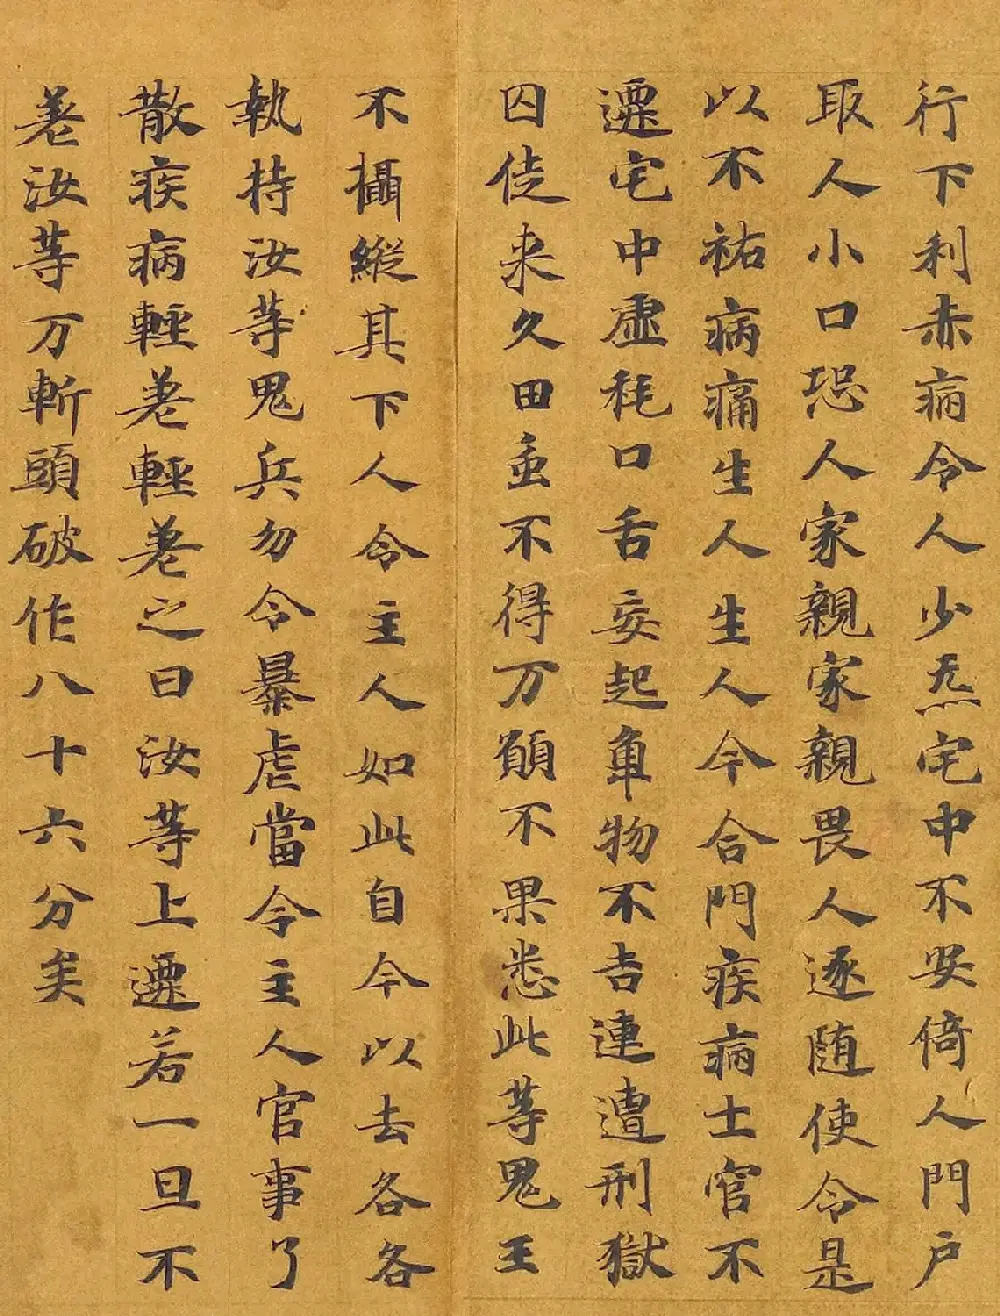 行下利赤病令人少炁宅中不安倚人門户
取人小口恐人家親家親畏人逐随使令是
以不祐病痛生人生人今合門疾病士官不
遷宅中虛耗口舌妄起車物不吉連遭刑獄
囚徒来久田蚕不得万願不果悉此等鬼王
不攝縱其下人令主人如此自今以去各各
執持汝等鬼兵勿令暴虐當令主人官事了
散疾病輕差輕差之日汝等上遷若一旦不
差汝等万斬頭破作八十六分矣